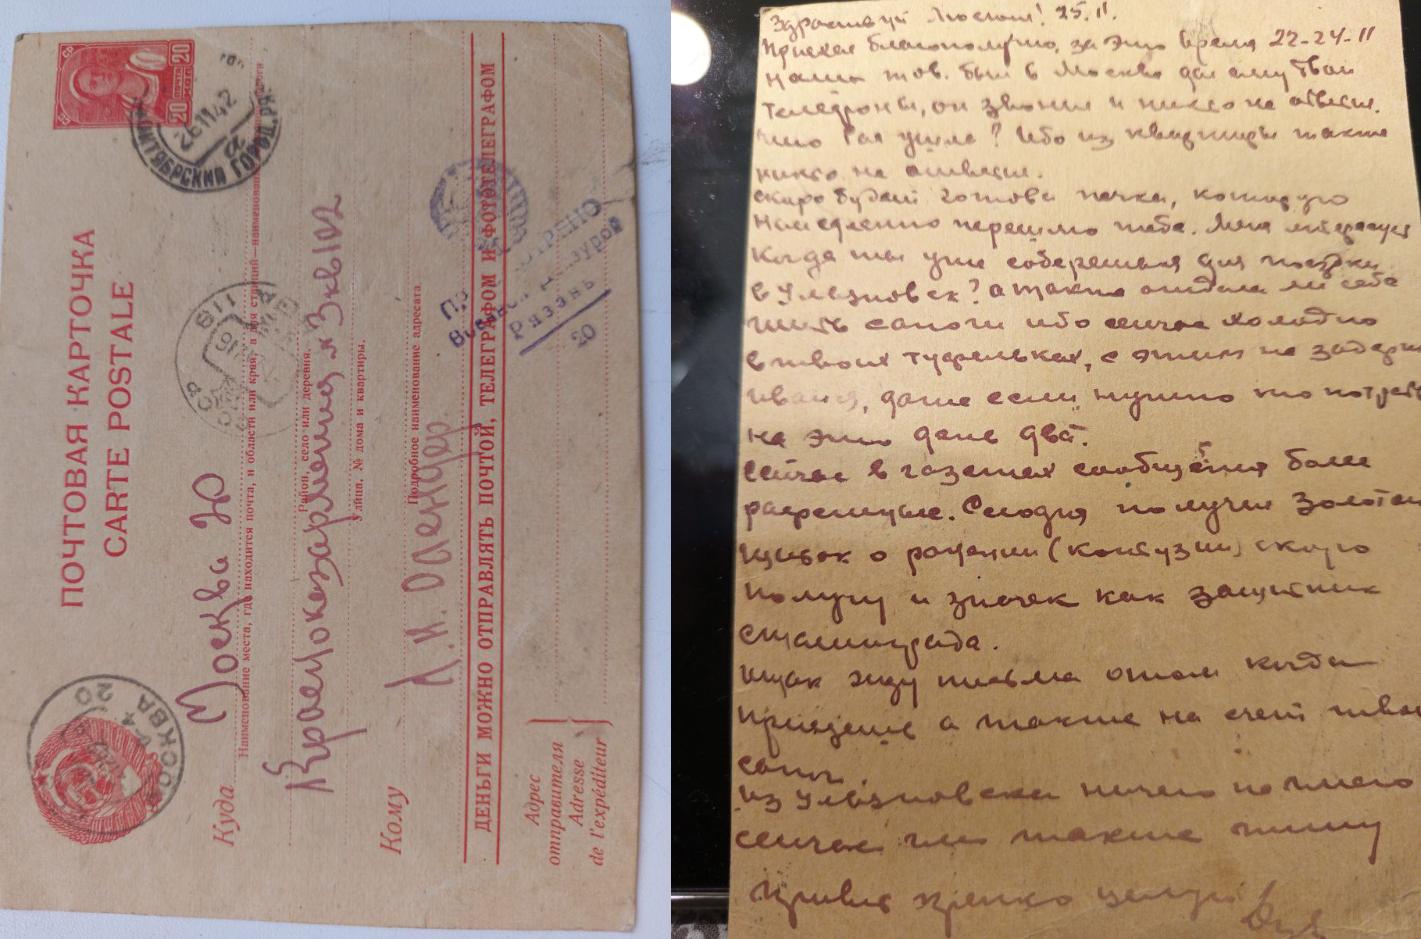 ПОЧТОВАЯ КАРТОЧКА
CARTE POSTALE
СР
20 20
ПОЧТА
26 11 42
ГОРОД. РЯ
МОСКВА 20
Куда
Москва
Наименование места, где находится почта, и области или края, а для станций—наименование
119
СССР
Район, село или деревня.
Красноказарменная 3 кв 102
Улица, № дома и квартиры.
Кому
Подробное наименование адресата.
Л. И.
ДЕНЬГИ МОЖНО ОТПРАВЛЯТЬ ПОЧТОЙ, ТЕЛЕГРАФОМ И ФОТОТЕЛЕГРАФОМ
Рязань
20
Адрес
отправителя
Adresse
de l'expéditeur
Здраствуй Люсичка! 25.11.
Приехал благополучно, за это время 22-24-11
наш тов. был в Москве дал ему твои
телефоны, он звонил и никто не ответил.
Что Рая ушла? Ибо из квартиры также
никто не ответил.
Скоро будет готова печка, которую
немедленно перешлю тебе. Меня интересует
когда ты уже соберешься для поездки
в Ульяновск? а также отдала ли себе
шить сапоги ибо сейчас холодно
в твоих туфельках, с этим не задержи
вайся, даже если нужно кто потреб
на это дань два.
Сейчас в газетах сообщения более
Сегодня получил Золотой
о ранении (контузии) скоро
получу и значек как защитник
Сталинграда.
Итак жду письма о том когда
приедешь а также на счет твоих
сапог.
Из Ульяновска ничего не имею
сейчас им также пишу
Привет крепко целую